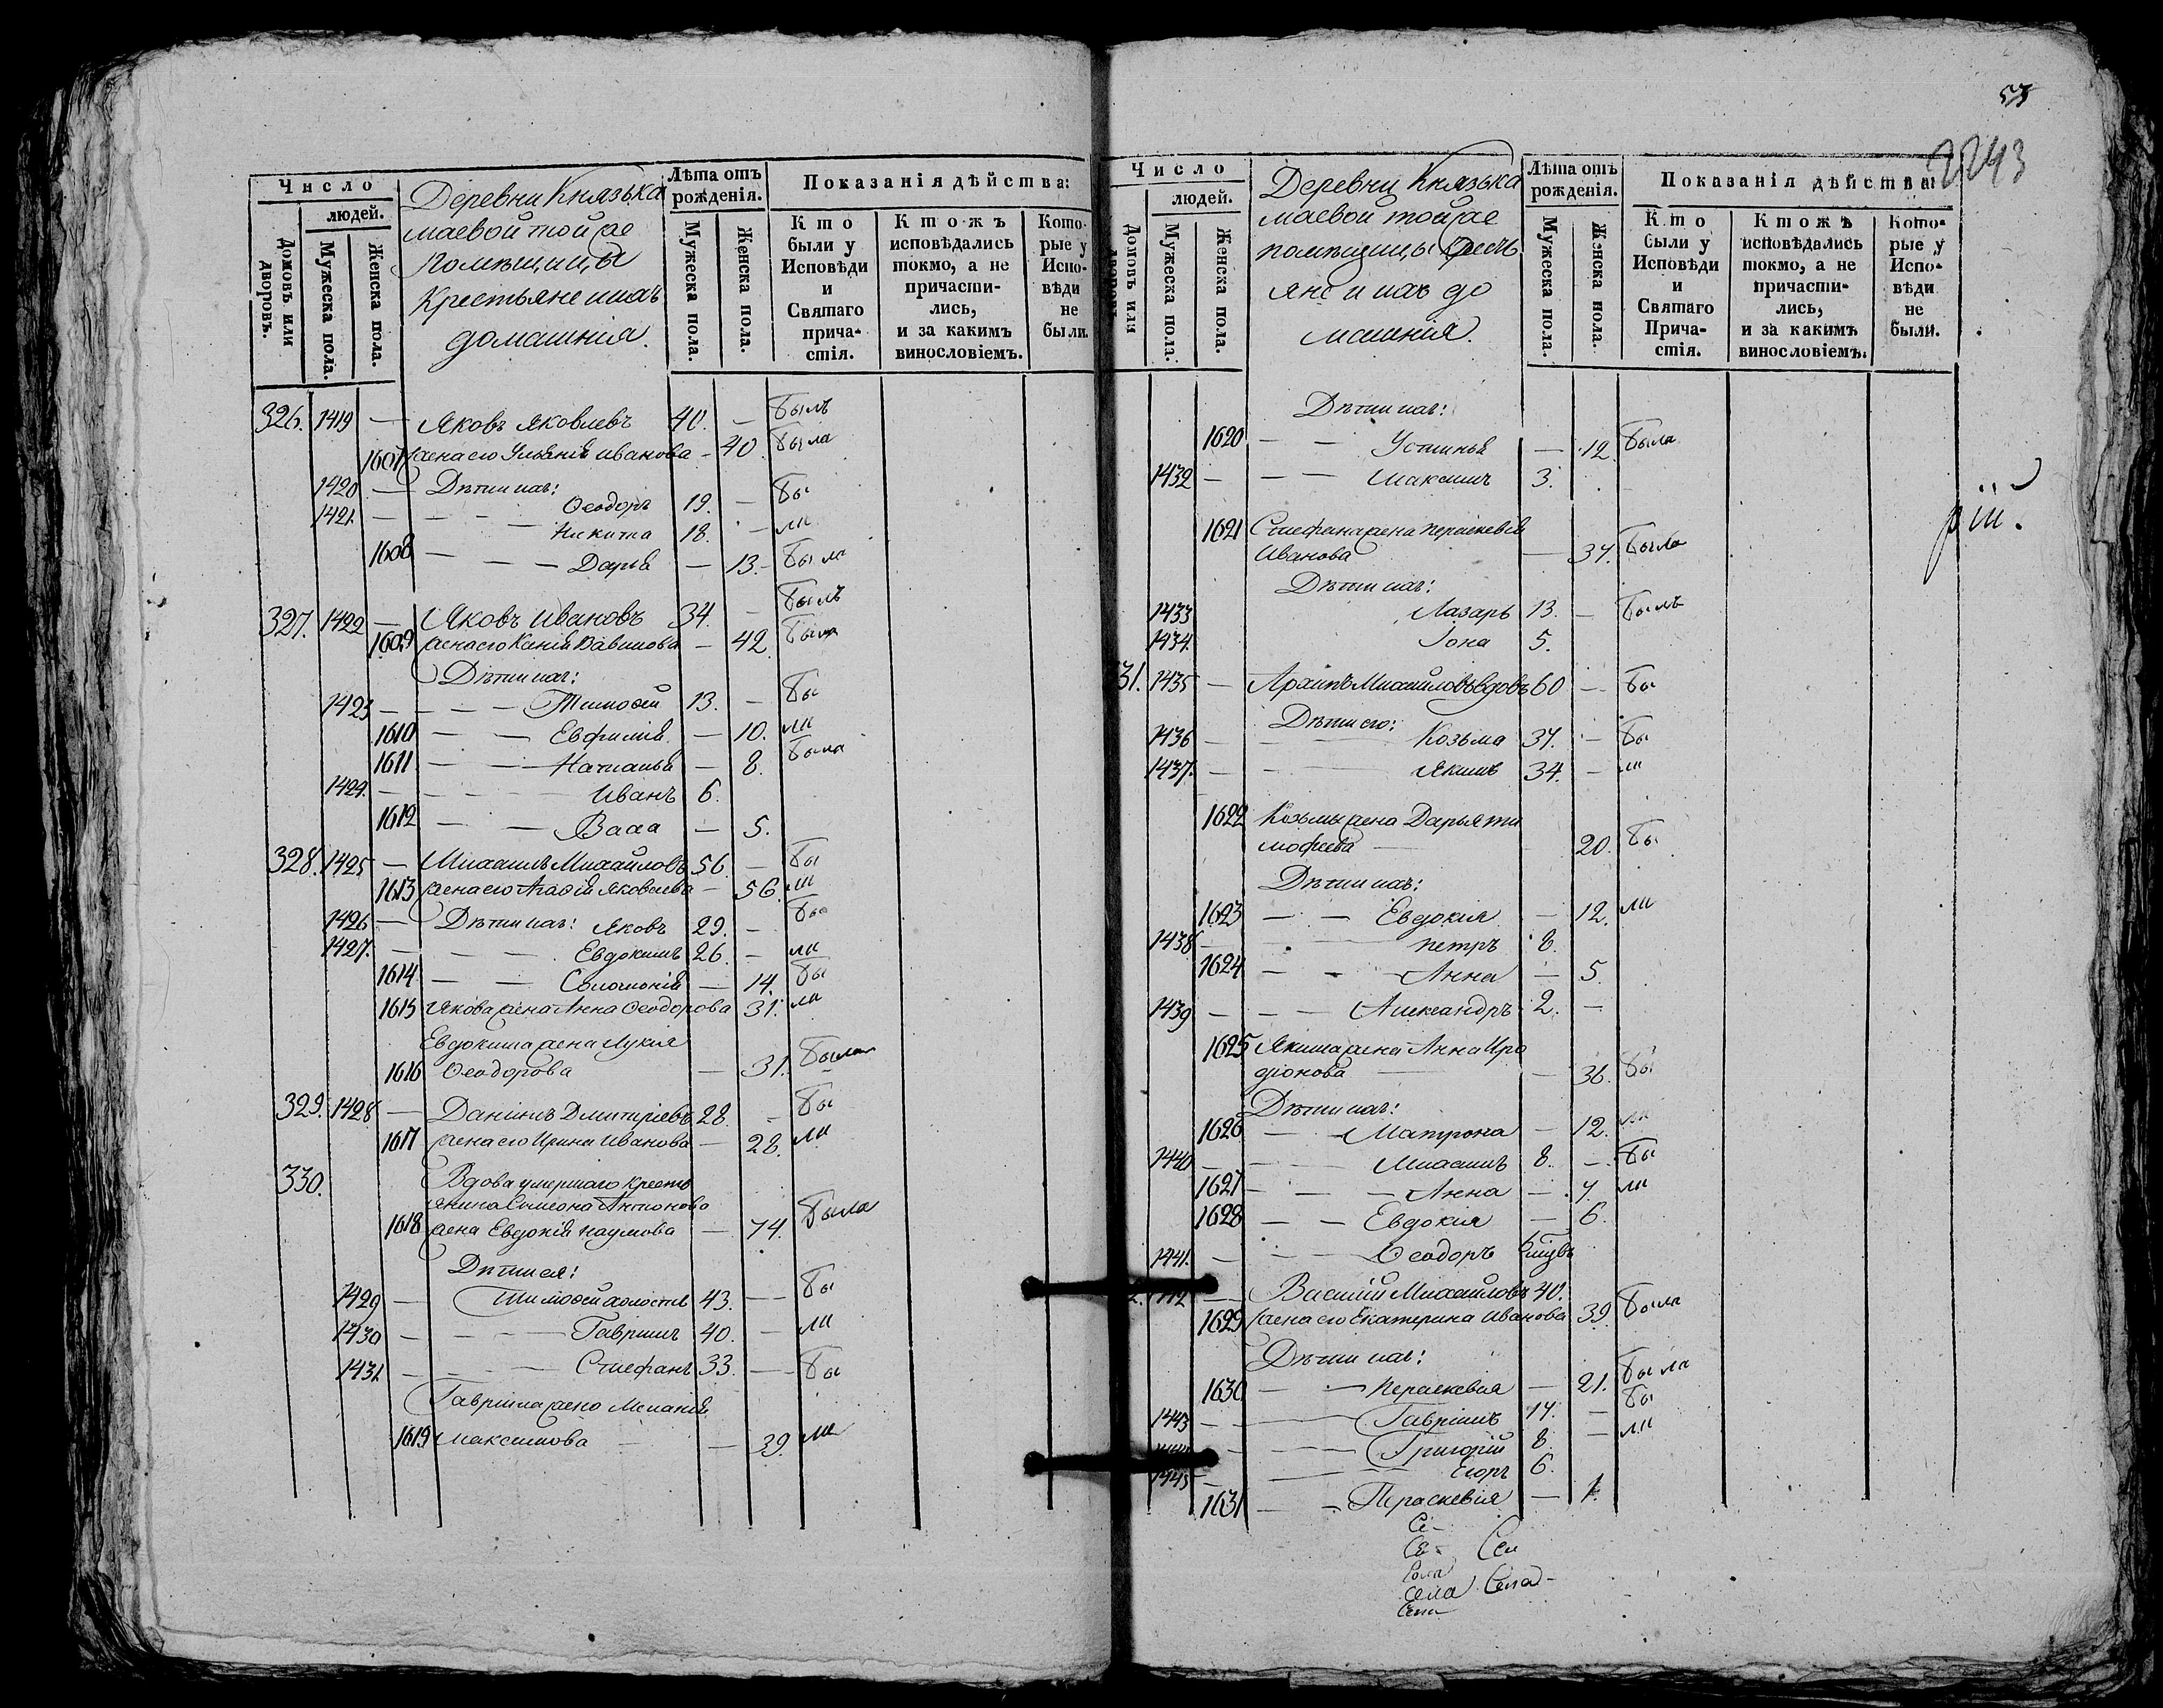 Число
людей.
Домовъ или дворовъ.
Мужеска пола.
Женска пола.
Деревни Князька
маевой той же
помѣщицы
Крестьяне и ихъ
домашнія.
Лѣта отъ рожденія.
Мужеска пола.
Женска пола.
Показанія дѣйства:
Кто были у Исповѣди и Святаго причастія.
Ктожъ исповѣдались токмо, а не причастились, и за какимъ винословіемъ.
Которые у Исповѣди не были.
326. 1419 — Яковъ Яковлевъ 40. — Былъ
1607 жена его Ульянія Иванова — 40. Была
1420 — Дѣти ихъ: Ѳеодоръ 19. — Бы
1421 — Никита 18. — ли
1608 — Дарья — 13. Была
327. 1422 — Яковъ Ивановъ 34. — Былъ
1609 жена его Ксенія Вавилова — 42. Была
Дѣти ихъ:
1423 — Тимоѳей 13. — Бы
1610 — Евфимія — 10. ли
1611 — Наталья — 8. Была
1424 — Иванъ 6.
1612 — Васса — 5.
328. 1425 — Михаилъ Михайловъ 56. — Бы
1613 жена его Агаѳія Яковлева — 56. ли
1426 — Дѣти ихъ: Яковъ 29. — Бы
1427. — Евдокимъ 26. — ли
1614 — Соломонія — 14. Бы
1615 Якова жена Анна Ѳеодорова 31. ли
Евдокима жена Лукія
1616 Ѳеодорова — 31. Была
329. 1428 — Даніилъ Дмитріевъ 28. — Бы
1617 жена его Ирина Иванова — 28. ли
330. Вдова умершаго кресть
янина Симеона Антонова
1618 жена Евдокія Наумова — 74. Была
Дѣти ея:
1429 — Тимоѳей холостъ 43. — Бы
1430 — Гавріилъ 40. — ли
1431 — Стефанъ 33. — Бы
Гавріила жена Меланія
1619 Максимова — 39. ли
53
2243
Число
людей.
Домовъ или дворовъ.
Мужеска пола.
Женска пола.
Деревни Князька
маевой той же
помѣщицы кресть
яне и ихъ до
машнія.
Лѣта отъ рожденія.
Мужеска пола.
Женска пола.
Показанія дѣйства:
Кто были у Исповѣди и Святаго Причастія.
Ктожъ исповѣдались токмо, а не причастились, и за какимъ винословіемъ.
Которые у Исповѣди не были.
Дѣти ихъ:
1620 — Устинья — 12. Была
1432 — Максимъ 3.
1621 Стефана жена Параскевія
Иванова — 37. Была
Дѣти ихъ:
1433 Лазарь 13. — Былъ
1434. Іона 5.
31. 1435 — Архипъ Михайловъ вдовъ 60 — Бы
Дѣти его:
1436 — Козьма 37. — Бы
1437. — Якимъ 34. — ли
1622 Козьмы жена Дарья Ти
мофеева — 20. Бы
Дѣти ихъ:
1623 — Евдокія — 12. ли
1438 — Петръ 8.
1624 — Анна — 5.
1439 — Александръ 2. —
1625 Якима жена Анна Иро
діонова — 36. Бы
Дѣти ихъ:
1626 — Матрона — 12. ли
1440 — Михаилъ 8. — Бы
1627 — Анна — 7. ли
1628 — Евдокія — 6.
1441. — Ѳеодоръ
2. 1442 — Василій Михайловъ 40.
1629 жена его Екатерина Иванова 39. Была
Дѣти ихъ:
1630 — Параскевія — 21. Была
1443 — Гавріилъ 14. — Бы
1444 — Григорій 8. — ли
1445 — Егоръ 6.
1631 — Параскевія — 1.
Се-
Се- Сел
Села Села
Села